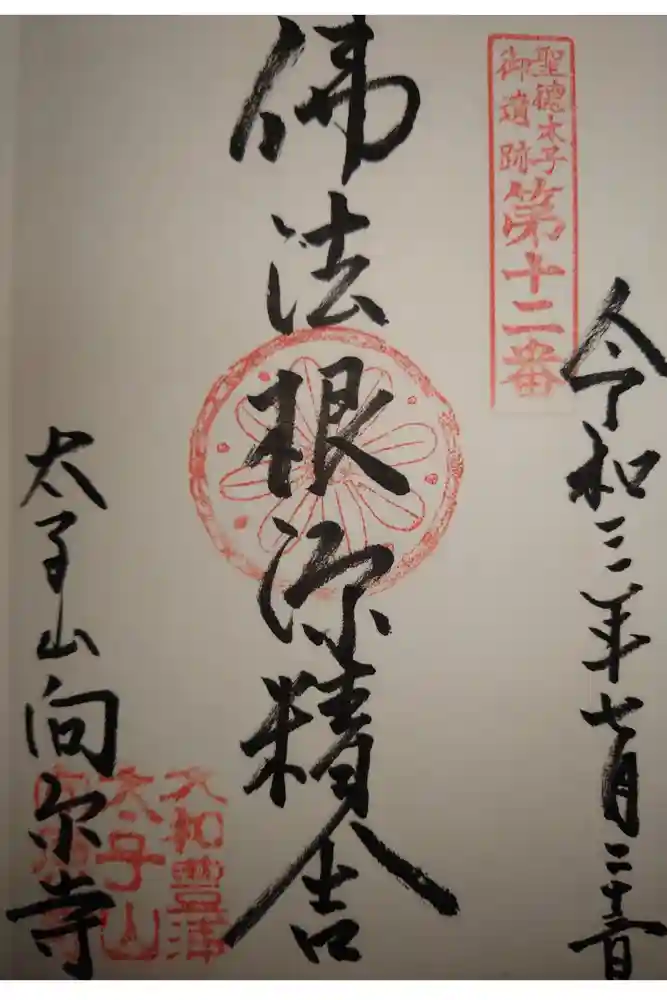 聖徳太子
御遺跡
第十二番
令和三年七月
佛法根源精舎
太子山向原寺
大和豊浦
太子山
向原寺